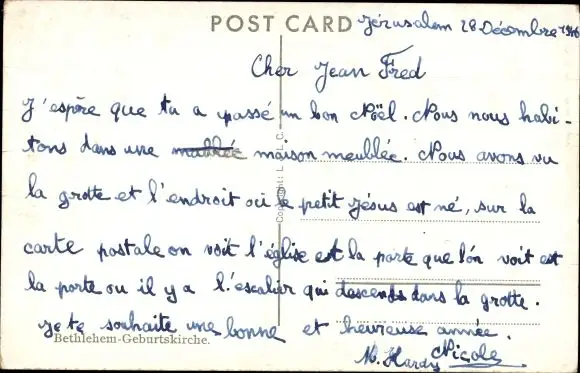 POST CARD
Jérusalem 28 Décembre 1946
Cher Jean Fred
J'espère que tu a passé un bon Noël. Nous nous habi-
tons dans une meublée maison meublée. Nous avons vu
la grotte et l'endroit où le petit Jésus est né, sur la
carte postale on voit l'église est la porte que l'on voit est
la porte ou il y a l'escalier qui descends dans la grotte.
je te souhaite une bonne et heureuse année.
Bethlehem-Geburtskirche.
M. Hardy Nicole
Copyright L. L. C.